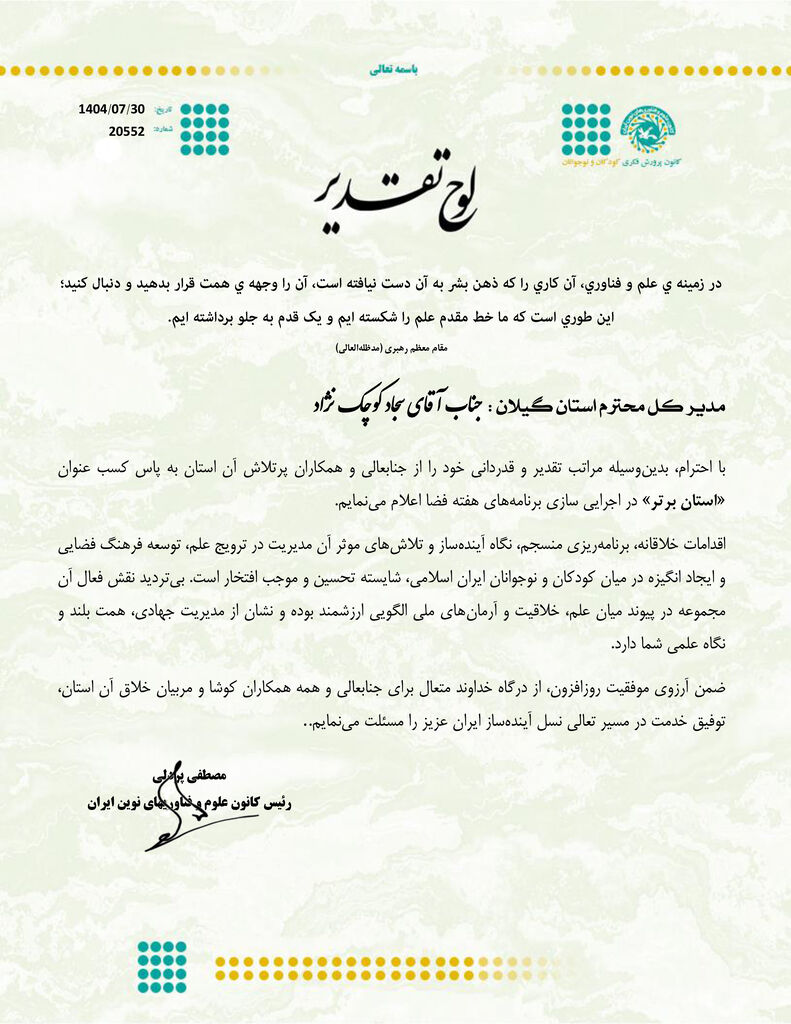 باسمه تعالی
تاریخ: 1404/07/30
شماره: 20552
کانون پرورش فکری کودکان و نوجوانان
لوح تقدیر
در زمينه ي علم و فناوري، آن كاري را كه ذهن بشر به آن دست نيافته است، آن را وجهه ي همت قرار بدهيد و دنبال كنيد؛
اين طوري است كه ما خط مقدم علم را شكسته ايم و يک قدم به جلو برداشته ايم.
مقام معظم رهبری (مدظله‌العالی)
مدیر کل محترم استان گیلان : جناب آقای سجاد کوچک نژاد
با احترام، بدین‌وسیله مراتب تقدیر و قدردانی خود را از جنابعالی و همکاران پرتلاش آن استان به پاس کسب عنوان
«استان برتر» در اجرایی سازی برنامه‌های هفته فضا اعلام می‌نمایم.
اقدامات خلاقانه، برنامه‌ریزی منسجم، نگاه آینده‌ساز و تلاش‌های موثر آن مدیریت در ترویج علم، توسعه فرهنگ فضایی
و ایجاد انگیزه در میان کودکان و نوجوانان ایران اسلامی، شایسته تحسین و موجب افتخار است. بی‌تردید نقش فعال آن
مجموعه در پیوند میان علم، خلاقیت و آرمان‌های ملی الگویی ارزشمند بوده و نشان از مدیریت جهادی، همت بلند و
نگاه علمی شما دارد.
ضمن آرزوی موفقیت روزافزون، از درگاه خداوند متعال برای جنابعالی و همه همکاران کوشا و مربیان خلاق آن استان،
توفیق خدمت در مسیر تعالی نسل آینده‌ساز ایران عزیز را مسئلت می‌نمایم..
مصطفی
رئیس کانون علوم و فناوریهای نوین ایران